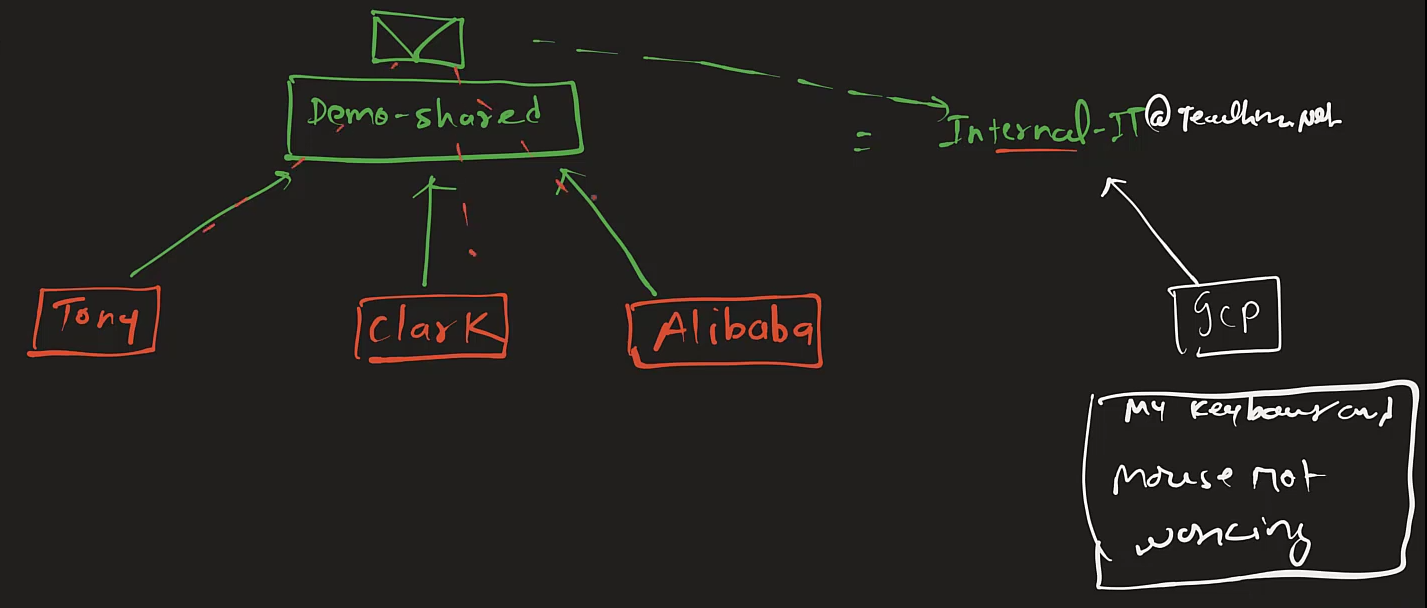 Demo-shared
= Internal-IT@
Tony
Clark
Alibaba
gcp
My keyboard and
mouse not
working